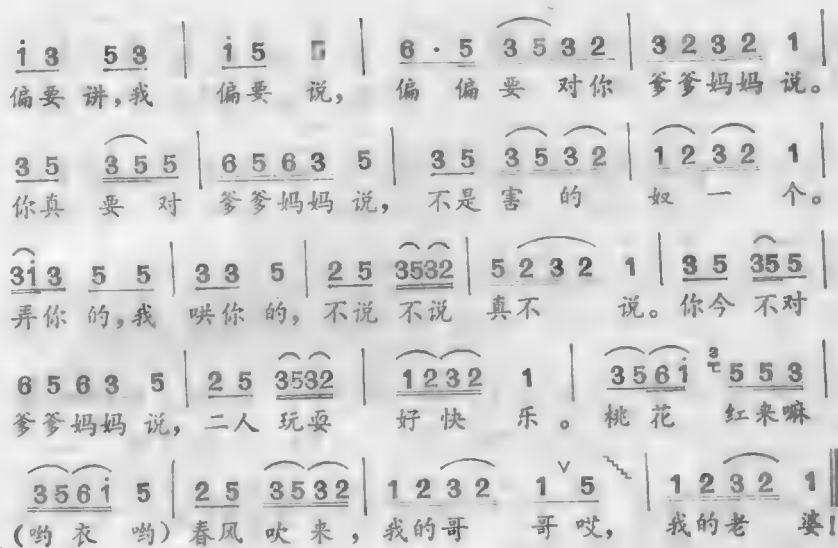 i̇ 3 5 3 | i̇ 5 5 | 6 · 5 3 5 3 2 | 3 2 3 2 1 |
偏要 讲,我 偏要 说, 偏 偏 要 对你 爹爹妈妈 说。
3 5 3 5 5 | 6 5 6 3 5 | 3 5 3 5 3 2 | 1 2 3 2 1 |
你真 要 对 爹爹妈妈 说, 不是 害 的 奴 一 个。
3 i̇ 3 5 5 | 3 3 5 | 2 5 3532 | 5 2 3 2 1 | 3 5 35 5 |
弄你 的,我 哄你 的, 不说 不说 真不 说。你今 不对
6 5 6 3 5 | 2 5 3532 | 1232 1 | 356i̇ 3 5 5 3 |
爹爹妈妈 说, 二人 玩耍 好 快 乐 。 桃 花 红来嘛
356i̇ 5 | 2 5 3532 | 1 2 3 2 1 ∨ 5 | 1 2 3 2 1 ‖
(哟 衣 哟) 春风 吹 来 , 我的哥 哥 哎, 我的老 婆!